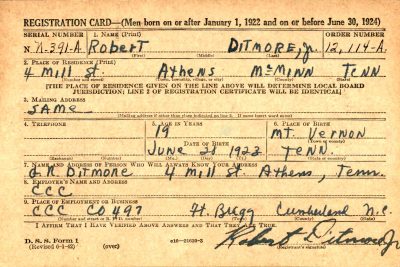 REGISTRATION CARD—(Men born on or after January 1, 1922 and on or before June 30, 1924)
SERIAL NUMBER 1. NAME (Print) ORDER NUMBER
N-391-A Robert DITMORE, Jr. 12,114-A
(First) (Middle) (Last)
2. PLACE OF RESIDENCE (Print)
4 Mill St. Athens McMINN TENN
(Number and street) (Town, township, village, or city) (County) (State)
[THE PLACE OF RESIDENCE GIVEN ON THE LINE ABOVE WILL DETERMINE LOCAL BOARD
JURISDICTION; LINE 2 OF REGISTRATION CERTIFICATE WILL BE IDENTICAL]
3. MAILING ADDRESS
SAME
[Mailing address if other than place indicated on line 2. If same insert word same]
4. TELEPHONE 5. AGE IN YEARS 6. PLACE OF BIRTH
19 MT. VERNON
DATE OF BIRTH (Town or county)
June 28 1922 TENN.
(Exchange) (Number) (Mo.) (Day) (Yr.) (State or country)
7. NAME AND ADDRESS OF PERSON WHO WILL ALWAYS KNOW YOUR ADDRESS
Ditmore 4 Mill St. Athens, Tenn.
8. EMPLOYER'S NAME AND ADDRESS
CCC
9. PLACE OF EMPLOYMENT OR BUSINESS
CCC CO 497 Ft. Bragg Cumberland N.C.
(Number and street or R. F. D. number) (Town) (County) (State)
I AFFIRM THAT I HAVE VERIFIED ABOVE ANSWERS AND THAT THEY ARE TRUE.
D. S. S. Form 1
(Revised 6-1-42) (over) Robert Ditmore Jr